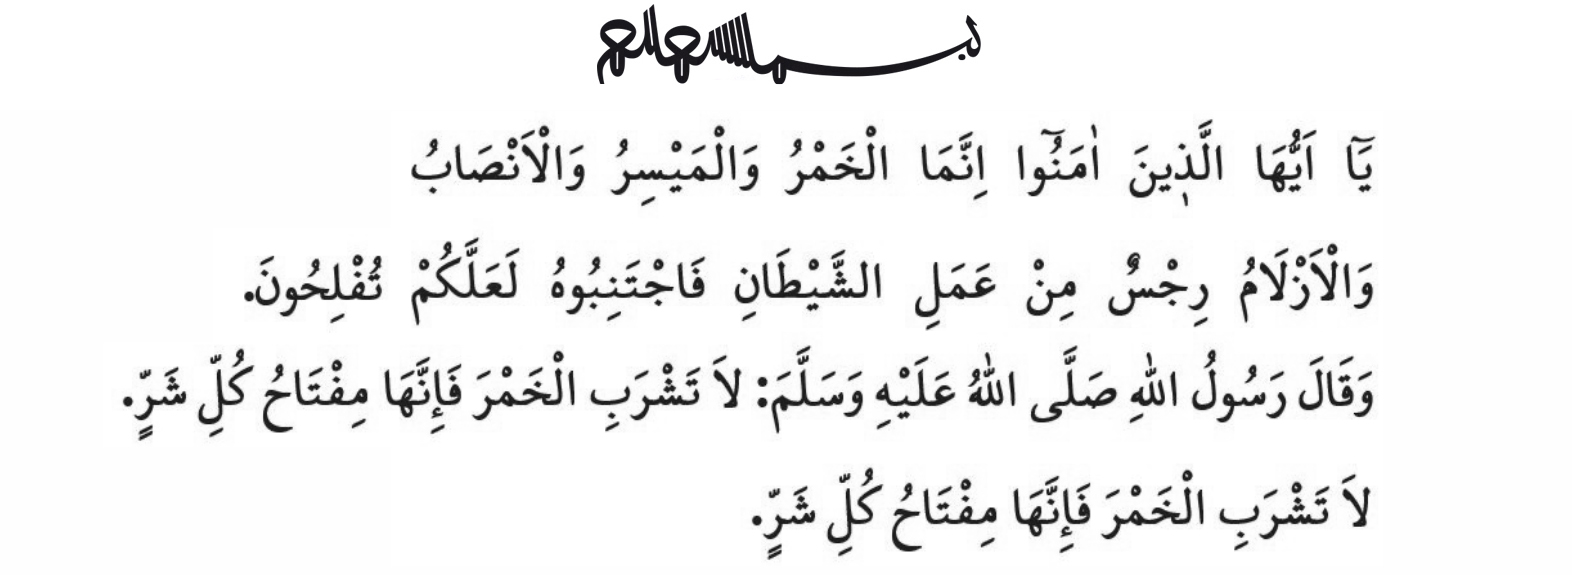 بسم الله الرحمن الرحيم
يَٓا اَيُّهَا الَّذ۪ينَ اٰمَنُٓوا اِنَّمَا الْخَمْرُ وَالْمَيْسِرُ وَالْاَنْصَابُ
وَالْاَزْلَامُ رِجْسٌ مِنْ عَمَلِ الشَّيْطَانِ فَاجْتَنِبُوهُ لَعَلَّكُمْ تُفْلِحُونَ.
وَقَالَ رَسُولُ اللهِ صَلَّى اللهُ عَلَيْهِ وَسَلَّمَ: لاَ تَشْرَبِ الْخَمْرَ فَإِنَّهَا مِفْتَاحُ كُلِّ شَرٍّ.
لاَ تَشْرَبِ الْخَمْرَ فَإِنَّهَا مِفْتَاحُ كُلِّ شَرٍّ.